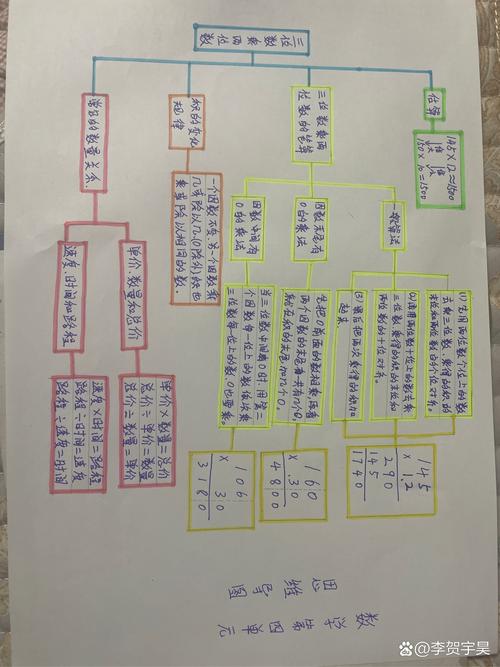 三位数乘两位数
估算
145×12≈1500
估 估
150×10=1500
三位数乘两位数的笔算
一般算法
(1)先用两位数个位上的数
去乘三位数,乘得的积的
末位和两位数的个位对齐。
(2)再用两位数十位上的数去乘
三位数,乘得的积的末位和
两位数的十位对齐。
(3)最后把两次乘得的积加
起来
145
×12
290
145
1740
因数末尾有
0的乘法
先把0前面的数相乘,再看
两个因数的末尾一共有几个0,
就在积的末尾加几个0。
160
×30
4800
因数中间有
0的乘法
当三位数中间有0时,用第二
个因数每一位上的数依次乘
三位数每一位上的数,0也要乘。
106
×30
3180
积的变化
规律
一个因数不变,另一个因数乘
几或除以几(0除外),积也
乘或除以相同的数。
常见的数量关系
单价 数量和总价
单价×数量=总价
总价÷单价=数量
总价÷数量=单价
速度、时间和路程
速度×时间=路程
路程÷时间=速度
路程÷速度=时间
数学第四单元
思维导图
@李贺宇昊